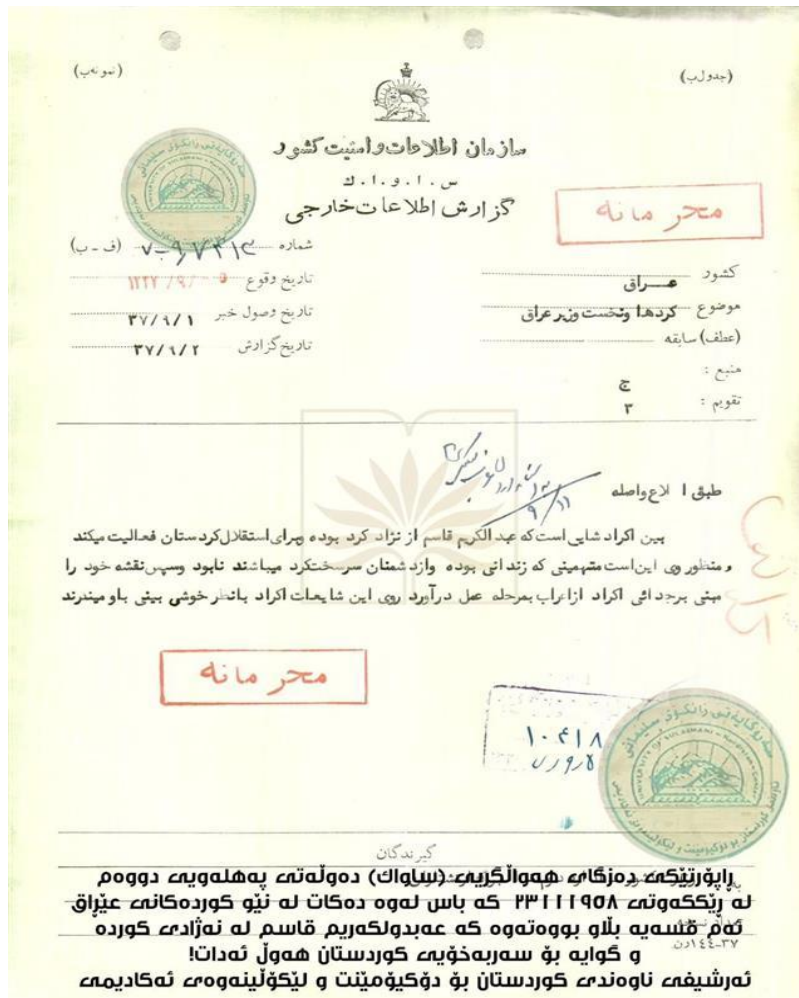 (جدول‌ب)
(نمونه‌ب)
سازمان اطلاعات و امنیت کشور
س . ا . و . ا . ك
گزارش اطلاعات خارجی
محرمانه
شماره (ف - ب)
کشور عـــراق
تاریخ وقوع
موضوع کردها ونخست وزیر عراق
تاریخ وصول خبر ۳۷/۹/۱
(عطف) سابقه
تاریخ گزارش ۳۷/۹/۲
منبع : ج
تقویم : ۳
طبق ا لاع واصله
بین اکراد شایی است که عبد الکریم قاسم از نژاد کرد بوده وبرای استقلال کردستان فعالیت میکند
و منظور وی این است متهمینی که زندانی بوده وازدشمنان سرسخت کرد میباشند نابود وسپس نقشه خود را
مبنی برجدائی اکراد ازاعراب بمرحله عمل درآورد روی این شایعات اکراد بانظر خوشی بینی باو مینگرند
محرمانه
۱۰۴۱۸
گیرندگان
راپۆرتێکی دەزگای هەواڵگریی (ساواك) دەوڵەتی پەهلەویی دووەم
لە رێککەوتی ٢٣١١١٩٥٨ کە باس لەوە دەکات لە نێو کوردەکانی عێراق
ئەم قسەیە بڵاو بووەتەوە کە عەبدولکەریم قاسم لە نەژادی کوردە
٣٧-١٤٤
و گوایە بۆ سەربەخۆیی کوردستان هەوڵ ئەدات!
ئەرشیفی ناوەندی کوردستان بۆ دۆکیۆمێنت و لێکۆڵینەوەی ئەکادیمی